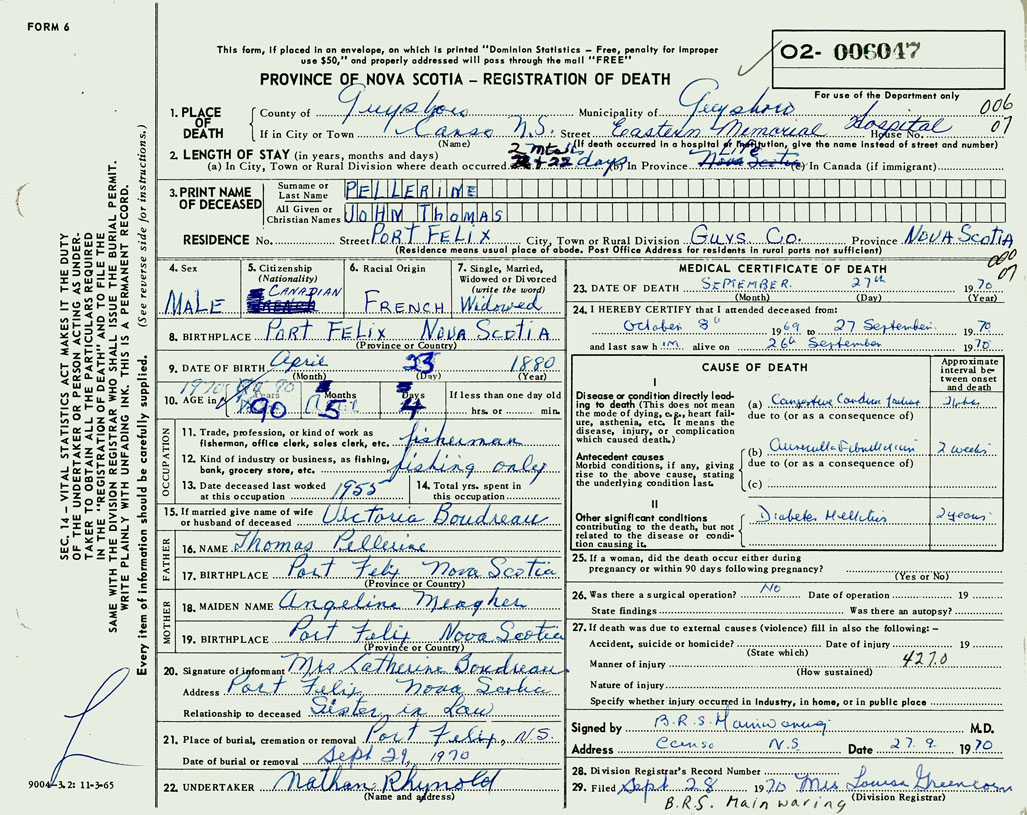 FORM 6
This form, if placed in an envelope, on which is printed "Dominion Statistics – Free, penalty for improper
use $50," and properly addressed will pass through the mail "FREE"
O2- 006047
PROVINCE OF NOVA SCOTIA – REGISTRATION OF DEATH
For use of the Department only
006
07
1. PLACE OF DEATH
County of Guysboro Municipality of Guysboro
If in City or Town Canso N.S. Street Eastern Memorial Hospital House No.
(Name) (If death occurred in a hospital or institution, give the name instead of street and number)
2. LENGTH OF STAY (in years, months and days)
(a) In City, Town or Rural Division where death occurred 2 mths + 22 days (b) In Province Life Nova Scotia (c) In Canada (if immigrant)
3. PRINT NAME OF DECEASED
Surname or Last Name PELLERINE
All Given or Christian Names JOHN THOMAS
RESIDENCE No. Street PORT FELIX City, Town or Rural Division GUYS. CO. Province NOVA SCOTIA
(Residence means usual place of abode. Post Office Address for residents in rural parts not sufficient)
000
07
4. Sex MALE
5. Citizenship (Nationality) CANADIAN
6. Racial Origin FRENCH
7. Single, Married, Widowed or Divorced (write the word) Widowed
8. BIRTHPLACE PORT FELIX NOVA SCOTIA
(Province or Country)
9. DATE OF BIRTH April 23 1880
(Month) (Day) (Year)
1970
10. AGE in Years 90 Months 5 Days 4 If less than one day old hrs. or min.
OCCUPATION
11. Trade, profession, or kind of work as fisherman, office clerk, sales clerk, etc. fisherman
12. Kind of industry or business, as fishing, bank, grocery store, etc. fishing only
13. Date deceased last worked at this occupation 1955 14. Total yrs. spent in this occupation
15. If married give name of wife or husband of deceased Victoria Boudreau
FATHER
16. NAME Thomas Pellerine
17. BIRTHPLACE Port Felix Nova Scotia
(Province or Country)
MOTHER
18. MAIDEN NAME Angeline Meagher
19. BIRTHPLACE Port Felix Nova Scotia
(Province or Country)
20. Signature of informant Mrs Catherine Boudreau
Address Port Felix Nova Scotia
Relationship to deceased Sister in Law
21. Place of burial, cremation or removal Port Felix, N.S.
Date of burial or removal Sept 29, 1970
22. UNDERTAKER Nathan Rhynold
(Name and address)
MEDICAL CERTIFICATE OF DEATH
23. DATE OF DEATH SEPTEMBER 27th 1970
(Month) (Day) (Year)
24. I HEREBY CERTIFY that I attended deceased from:
October 8th 1969 to 27 September 1970
and last saw him alive on 26th September 1970
CAUSE OF DEATH
Approximate interval between onset and death
I
Disease or condition directly leading to death (This does not mean the mode of dying, e.g., heart failure, asthenia, etc. It means the disease, injury, or complication which caused death.)
(a) Congestive Cardiac failure
due to (or as a consequence of)
Antecedent causes
Morbid conditions, if any, giving rise to the above cause, stating the underlying condition last.
(b) Auricular Fibrillation 2 weeks
due to (or as a consequence of)
(c)
II
Other significant conditions contributing to the death, but not related to the disease or condition causing it.
Diabetes Mellitus 2 years
25. If a woman, did the death occur either during
pregnancy or within 90 days following pregnancy?
(Yes or No)
26. Was there a surgical operation? No Date of operation 19
State findings Was there an autopsy?
27. If death was due to external causes (violence) fill in also the following: –
Accident, suicide or homicide? Date of injury 19
(State which)
Manner of injury 427.0
(How sustained)
Nature of injury
Specify whether injury occurred in industry, in home, or in public place
Signed by B.R.S. Mainwaring M.D.
Address Canso N.S Date 27.9. 1970
28. Division Registrar's Record Number
29. Filed Sept 28 1970 Mrs Louise Greencorn
(Division Registrar)
B.R.S. Mainwaring
SEC. 14 – VITAL STATISTICS ACT MAKES IT THE DUTY
OF THE UNDERTAKER OR PERSON ACTING AS UNDER-
TAKER TO OBTAIN ALL THE PARTICULARS REQUIRED
IN THE "REGISTRATION OF DEATH" AND TO FILE THE
SAME WITH THE DIVISION REGISTRAR WHO SHALL ISSUE THE BURIAL PERMIT.
WRITE PLAINLY WITH UNFADING INK. THIS IS A PERMANENT RECORD.
Every item of information should be carefully supplied. (See reverse side for instructions.)
9004–3.2: 11-3-65